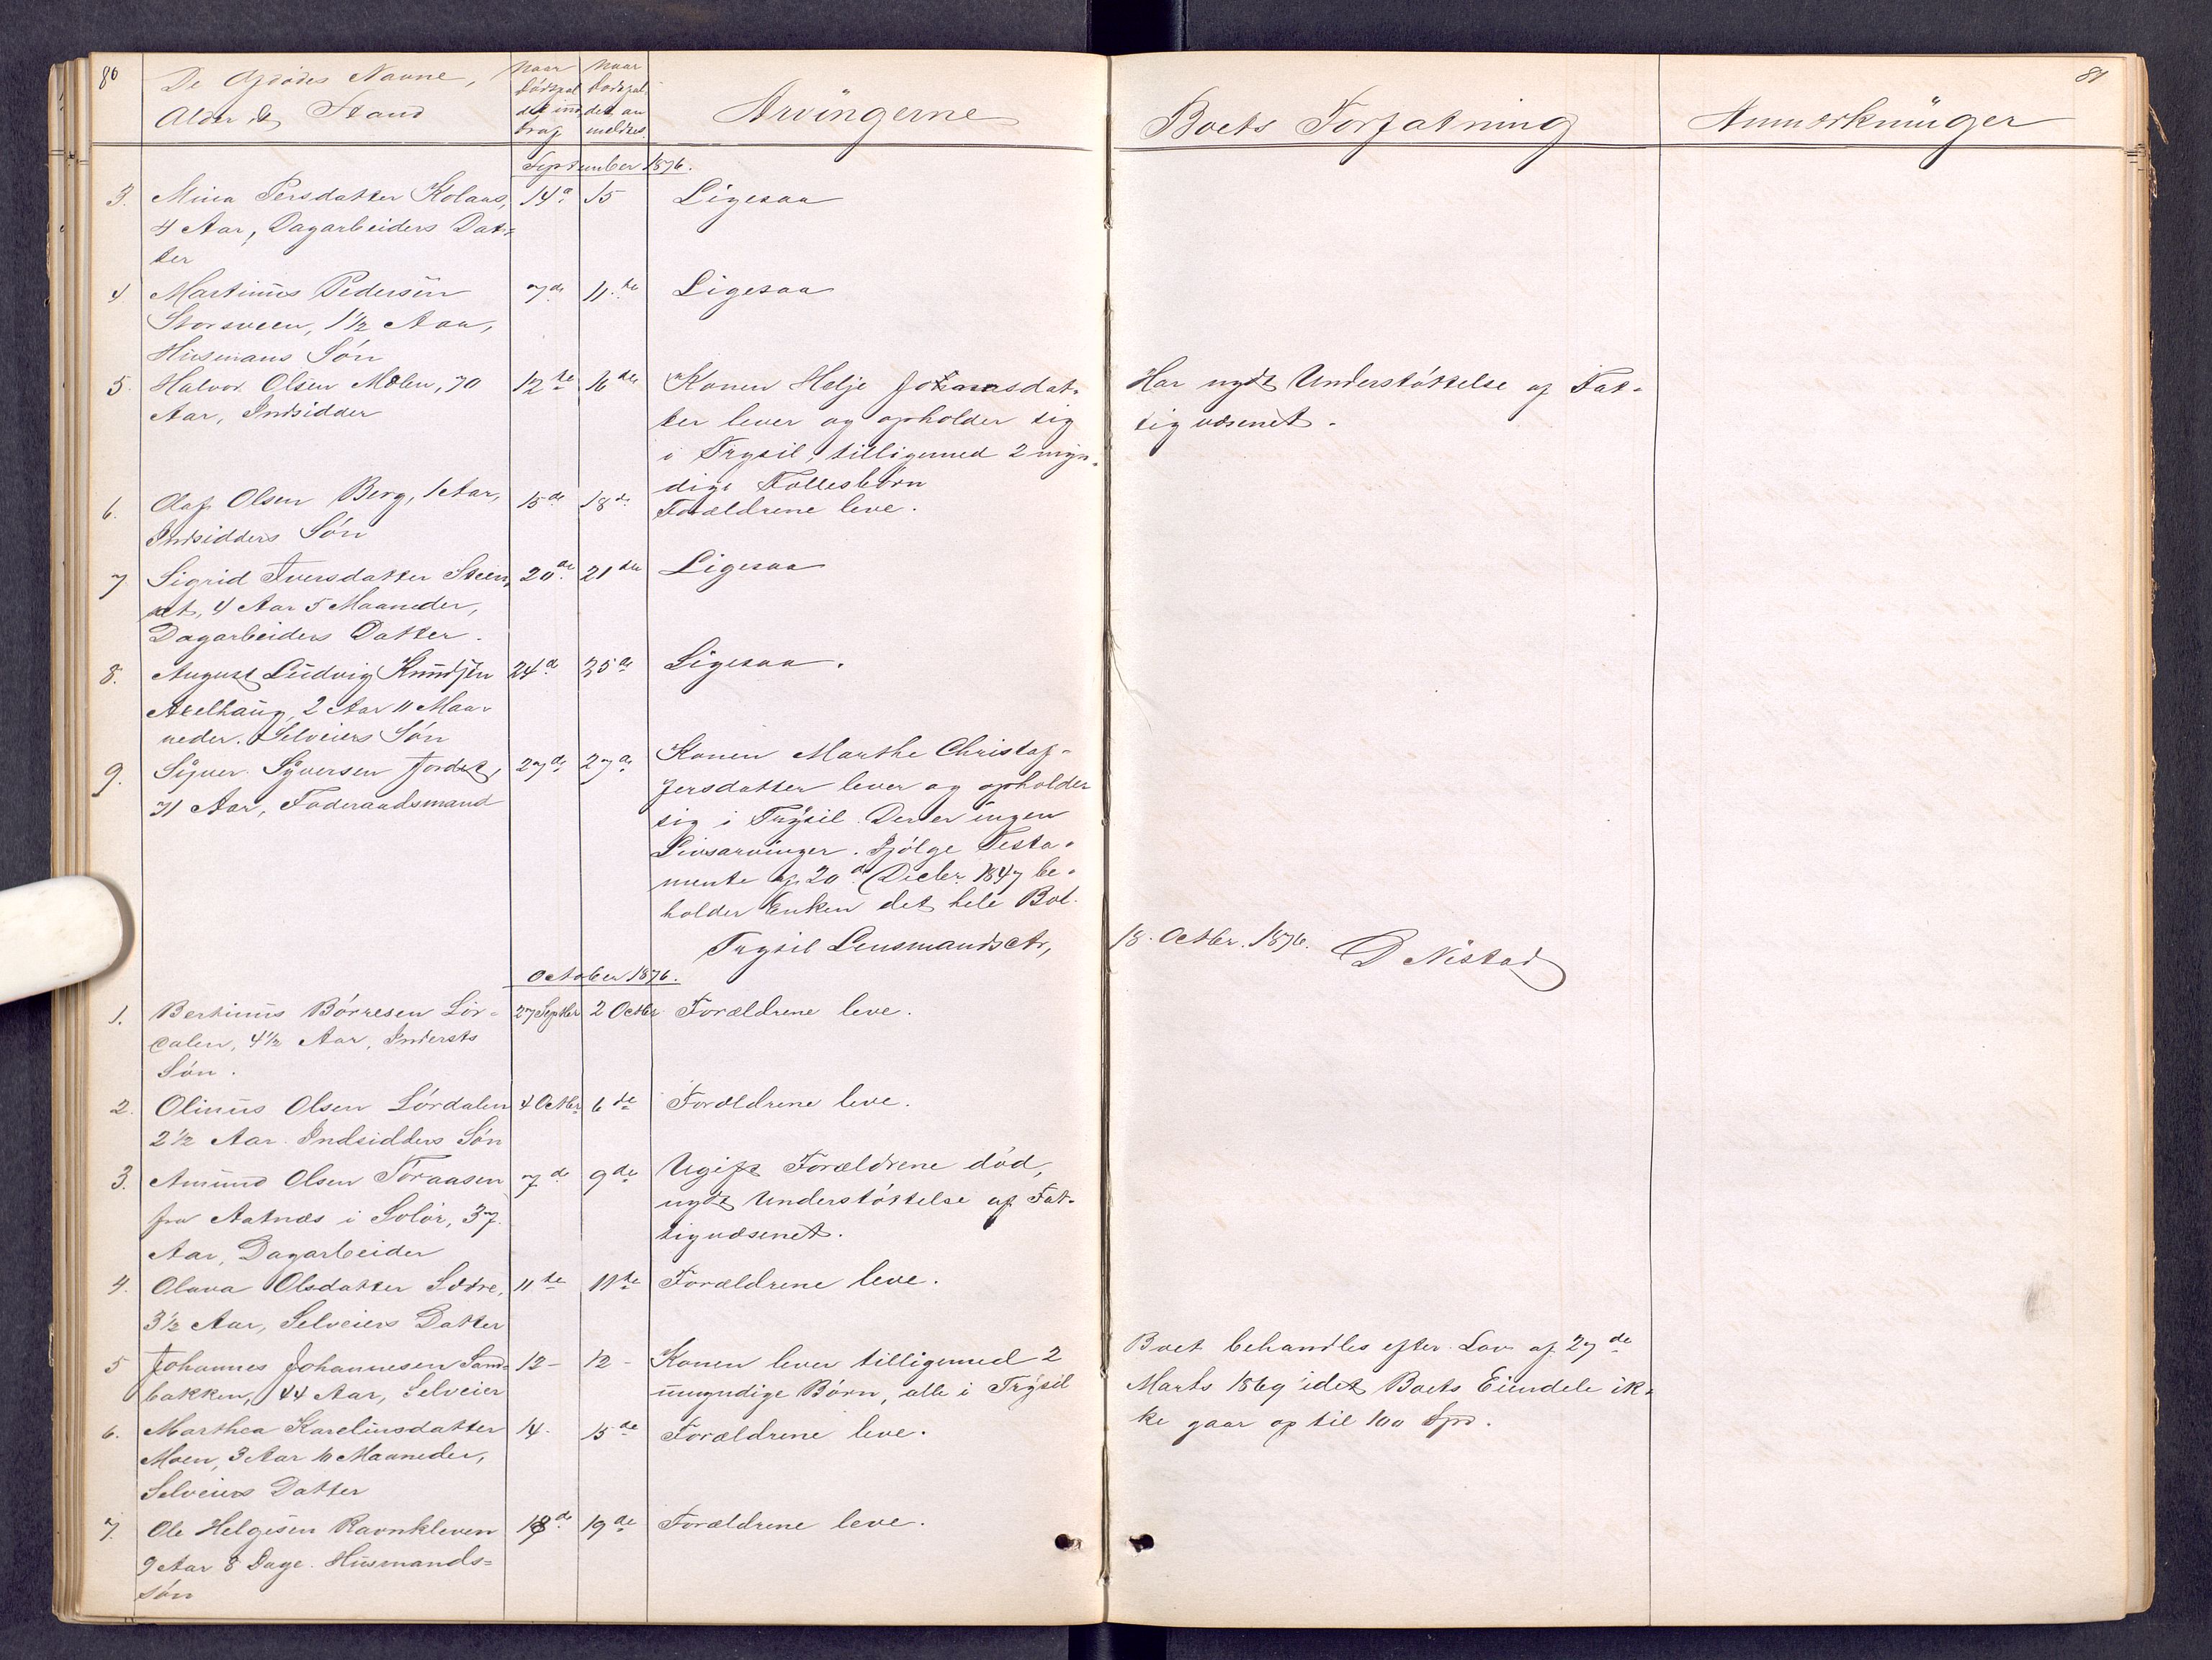 80
De Afdødes Navne,
Alder & Stand
Naar Dødsfaldet indtraf
Naar Dødsfaldet anmeldtes
Arvingerne
Boets Forfatning
Anmærkninger
81
September 1876.
3. Mina Persdatter Kolaas, 14de 15 Ligesaa
4 Aar, Dagarbeiders Dat-
ter
4 Martinus Pedersen 7de 11te Ligesaa
Storsveen, 1½ Aar,
Husmans Søn
5. Halvor Olsen Mølen, 70 12te 16de Konen Helje Johansdat- Har nydt Understøttelse af Fat-
Aar, Indsidder ter lever og opholder sig tigvæsenet.
i Trysil, tilligemed 2 myn-
dige Fællesbørn
6. Olaf Olsen Berg, 1 Aar, 15de 18de Forældrene leve.
Indsidders Søn
7 Sigrid Iversdatter Steen- 20de 21de Ligesaa
æt, 4 Aar 5 Maaneder,
Dagarbeiders Datter.
8. August Ludvig Knudsen 24d 25de Ligesaa.
Axelhaug, 2 Aar 11 Maa-
neder. Selveiers Søn
9. Syver Syversen Jordet, 27de 27de Konen Marthe Christof-
71 Aar, Føderaadsmand fersdatter lever og opholder
sig i Trysil. Der er ingen
Livsarvinger. Ifølge Testa-
mente af 20de Decbr. 1847 be-
holder Enken det hele Bol.
Trysil Lensmandsctr, 18. Octbr. 1876. D Nistad
October 1876.
1. Bertinus Børresen Lør- 27 Septbr 2 Octbr Forældrene leve.
dalen, 4½ Aar, Indersts
Søn.
2. Olinus Olsen Lørdalen 4 Octbr 6te Forældrene leve.
2½ Aar. Indsidders Søn
3. Amund Olsen Toraasen 7de 9de Ugift Forældrene död,
fra Aatnæs i Solør, 37 nydt Understøttelse af Fat-
Aar, Dagarbeider tigvæsenet.
4. Olava Olsdatter Sætre, 11te 11te Forældrene leve.
3½ Aar, Selveiers Datter
5 Johannes Johannesen Sand- 12- 12- Konen lever tilligemed 2 Boet behandles efter Lov af 27de
bakken, 44 Aar, Selveier umyndige Børn, alle i Trysil Marts 1869 idet Boets Eiendele ik-
ke gaar op til 100 Spd.
6. Marthea Karelinsdatter 14. 15de Forældrene leve.
Moen, 3 Aar 10 Maaneder,
Selveiers Datter
7. Ole Helgesen Ravnkleven 18de 19de Forældrene leve.
9 Aar 8 Dage. Husmands-
søn